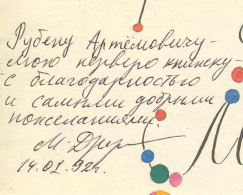 Рубену Артёмовичу -
мою первую книжку -
с благодарностью
и самыми добрыми
пожеланиями.
14.01.92г.
М